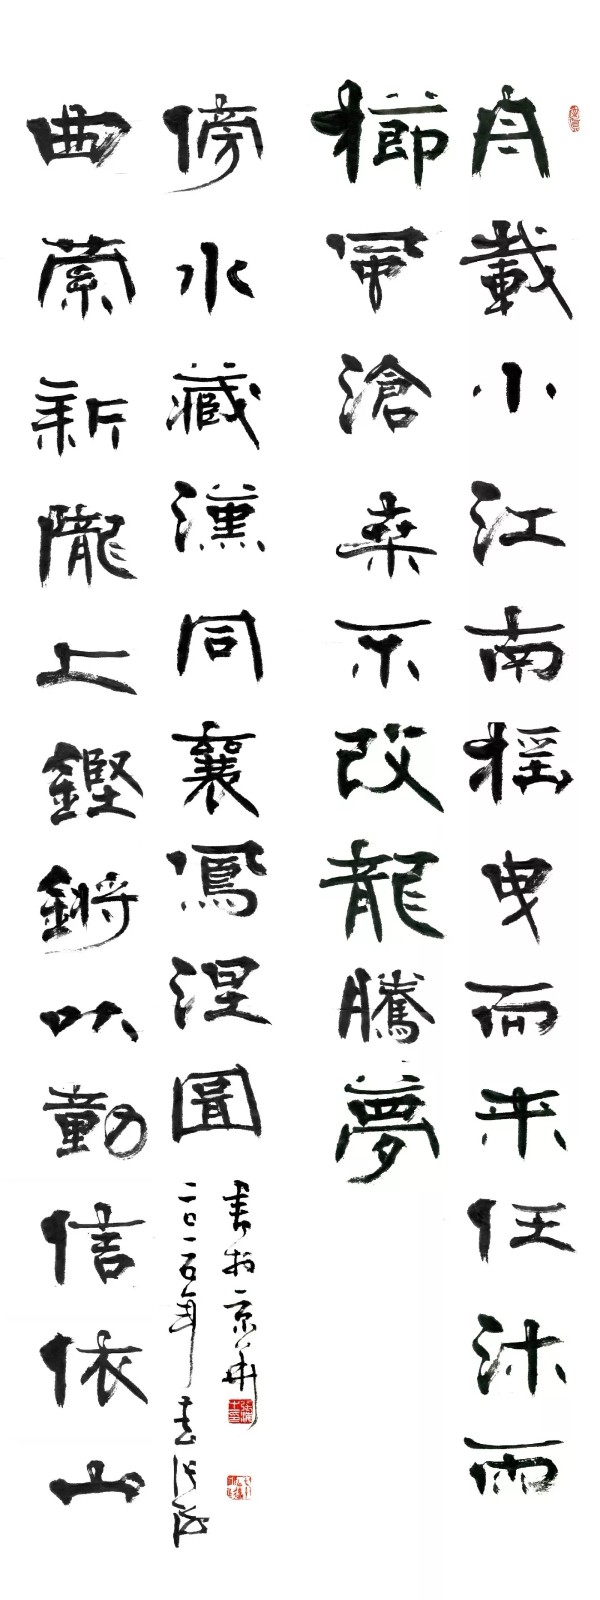 舟載小江南搖曳而来任沐雨
櫛風滄桑不改龍騰夢
曲縈新隴上鏗鏘以動信依山
傍水藏漢同襄鳳涅圖
書於京華
二〇一五年